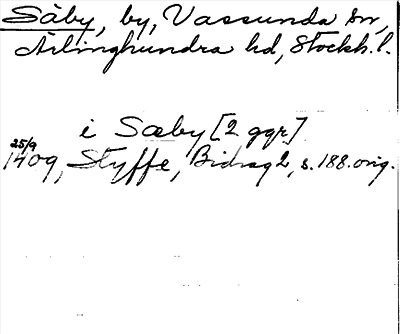 Säby, by, Vassunda sn,
Ärlinghundra hd, Stockh. l.
i Sæby [2 ggr]
25/9
1409, Styffe, Bidrag 2, s. 188. orig.